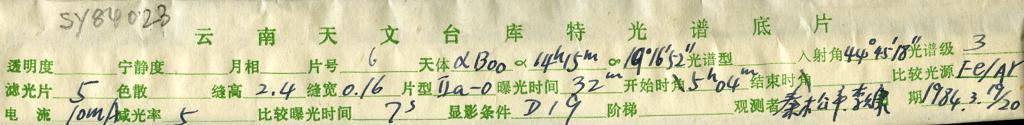 SY84023
云南天文台库特光谱底片
透明度 宁静度 月相 片号 6 天体 αBoo α 14h15m ∞ 19°16′52″ 光谱型 入射角 44°45′18″ 光谱级 3
滤光片 5 色散 缝高 2.4 缝宽 0.16 片型 IIa-0 曝光时间 32m 开始时角 5h04m 结束时角 比较光源 Fe/Ar
电流 10mA 减光率 5 比较曝光时间 7s 显影条件 D19 阶梯 观测者 秦松年 李 期 1984.3.19/20